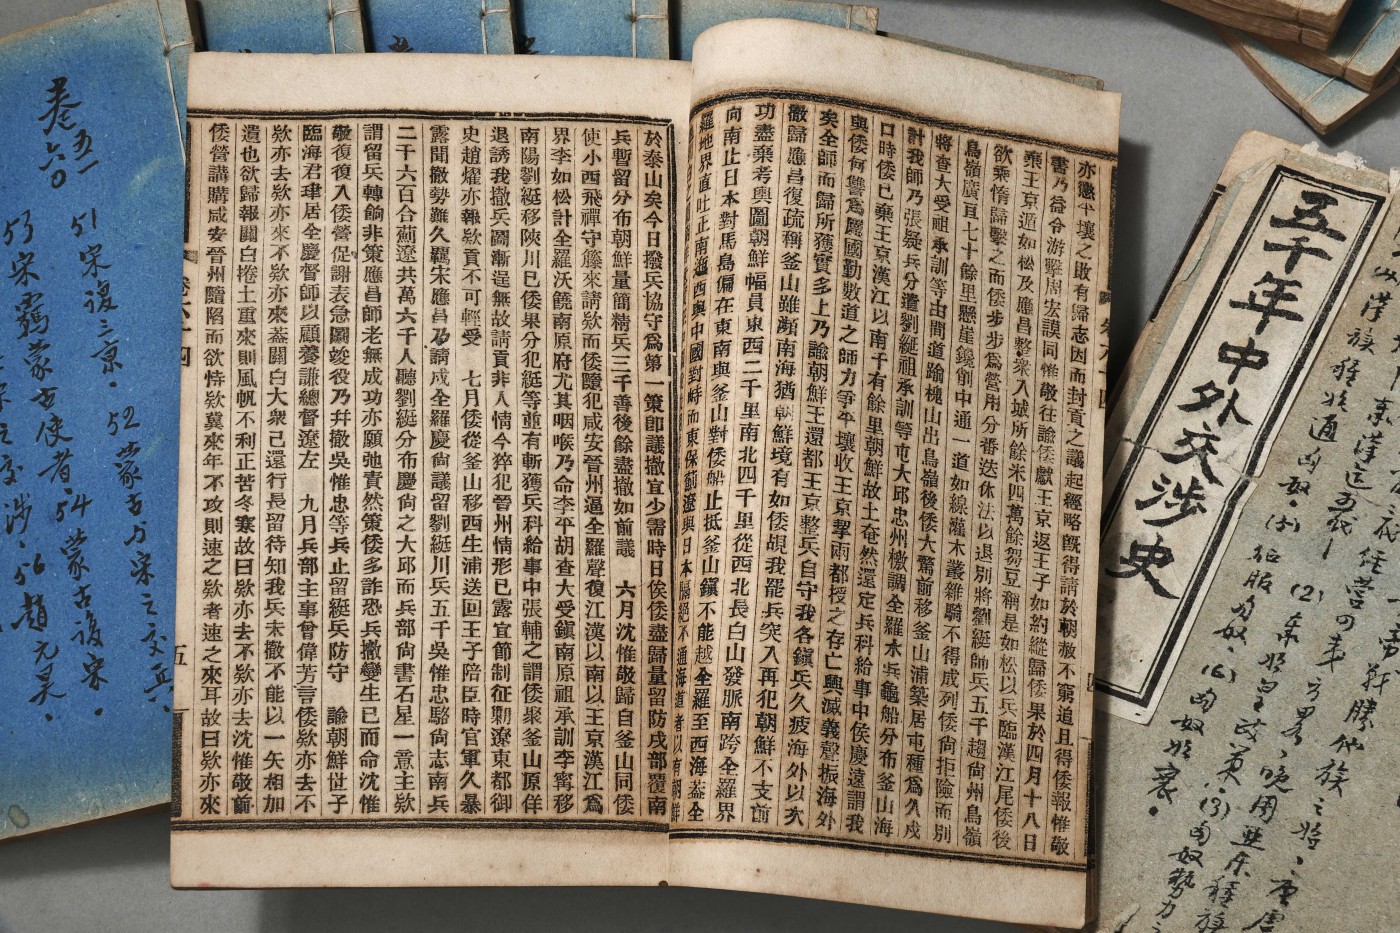 亦懲平壤之敗有歸志因而封貢之議起經略旣得請於朝赦不窮追且得倭報惟敬
書乃益令游擊周宏謨同惟敬往諭倭獻王京返王子如約縱歸倭果於四月十八日
棄王京遁如松及應昌整衆入城所餘米四萬餘芻豆稱是如松以兵臨漢江尾倭後
欲乘惰歸擊之而倭步步爲營用分番迭休法以退別將劉綎帥兵五千趨尙州鳥嶺
鳥嶺廣亘七十餘里懸崖巉削中通一道如線灌木叢雜騎不得成列倭尙拒險而別
將查大受祖承訓等由間道踰槐山出鳥嶺後倭大驚前移釜山浦築居屯種爲久戍
計我師乃張疑兵分遣劉綎祖承訓等屯大邱忠州檄調全羅水兵龜船分布釜山海
口時倭已棄王京漢江以南千有餘里朝鮮故土奄然還定兵科給事中侯慶遠謂我
與倭何讐爲屬國勤數道之師力爭平壤收王京挈兩都授之存亡興滅義聲振海外
矣全師而歸所獲實多上乃諭朝鮮王還都王京整兵自守我各鎭兵久疲海外以次
撤歸應昌復疏稱釜山雖瀕南海猶朝鮮境有如倭覘我罷兵突入再犯朝鮮不支前
功盡棄考輿圖朝鮮幅員東西二千里南北四千里從西北長白山發脈南跨全羅界
向南止日本對馬島偏在東南與釜山對倭船止抵釜山鎭不能越全羅至西海葢全
羅地界直吐正南迤西與中國對峙而東保薊遼與日本隔絕不通海道者以有朝鮮
於泰山矣今日撥兵協守爲第一策即議撤宜少需時日俟倭盡歸量留防戍部覆南
兵暫留分布朝鮮量簡精兵三千善後餘盡撤如前議 六月沈惟敬歸自釜山同倭
使小西飛禪守藤來請欵而倭隨犯咸安晉州逼全羅聲復江漢以南以王京漢江爲
界李如松計全羅沃饒南原府尤其咽喉乃命李平胡查大受鎭南原祖承訓李寗移
南陽劉綎移陝川已倭果分犯綎等並有斬獲兵科給事中張輔之謂倭聚釜山原佯
退誘我撤兵圖漸逞無故請貢非人情今猝犯晉州情形已露宜節制征勦遼東都御
史趙燿亦報欵貢不可輕受 七月倭從釜山移西生浦送回王子陪臣時官軍久暴
露聞撤勢難久羈宋應昌乃請成全羅慶尙議留劉綎川兵五千吳惟忠駱尙志南兵
二千六百合薊遼共萬六千人聽劉綎分布慶尙之大邱而兵部尙書石星一意主欵
謂留兵轉餉非策應昌師老無成功亦願弛責然策倭多詐恐兵撤變生已而命沈惟
敬復復入倭營促謝表急圖竣役乃幷撤吳惟忠等兵止留綎兵防守 諭朝鮮世子
臨海君珒居全慶督師以顧養謙總督遼左 九月兵部主事曾偉芳言倭欵亦去不
欵亦去欵亦來不欵亦來葢關白大衆已還行長留待知我兵未撤不能以一矢相加
遺也欲歸報關白捲土重來則風帆不利正苦冬寒故曰欵亦去不欵亦去沈惟敬前
倭營講購咸安晉州隨陷而欲恃欵冀來年不攻則速之欵者速之來耳故曰欵亦來
卷六十四
五
卷五一
六〇
51 宋復三京．
52 蒙古与宋之交兵
53 宋羈蒙古使者．
54 蒙古復宋．
56 趙元昊．
五千年中外交涉史
(2)
(3)匈奴勢力
(5)征服匈奴．(6)匈奴將衰．